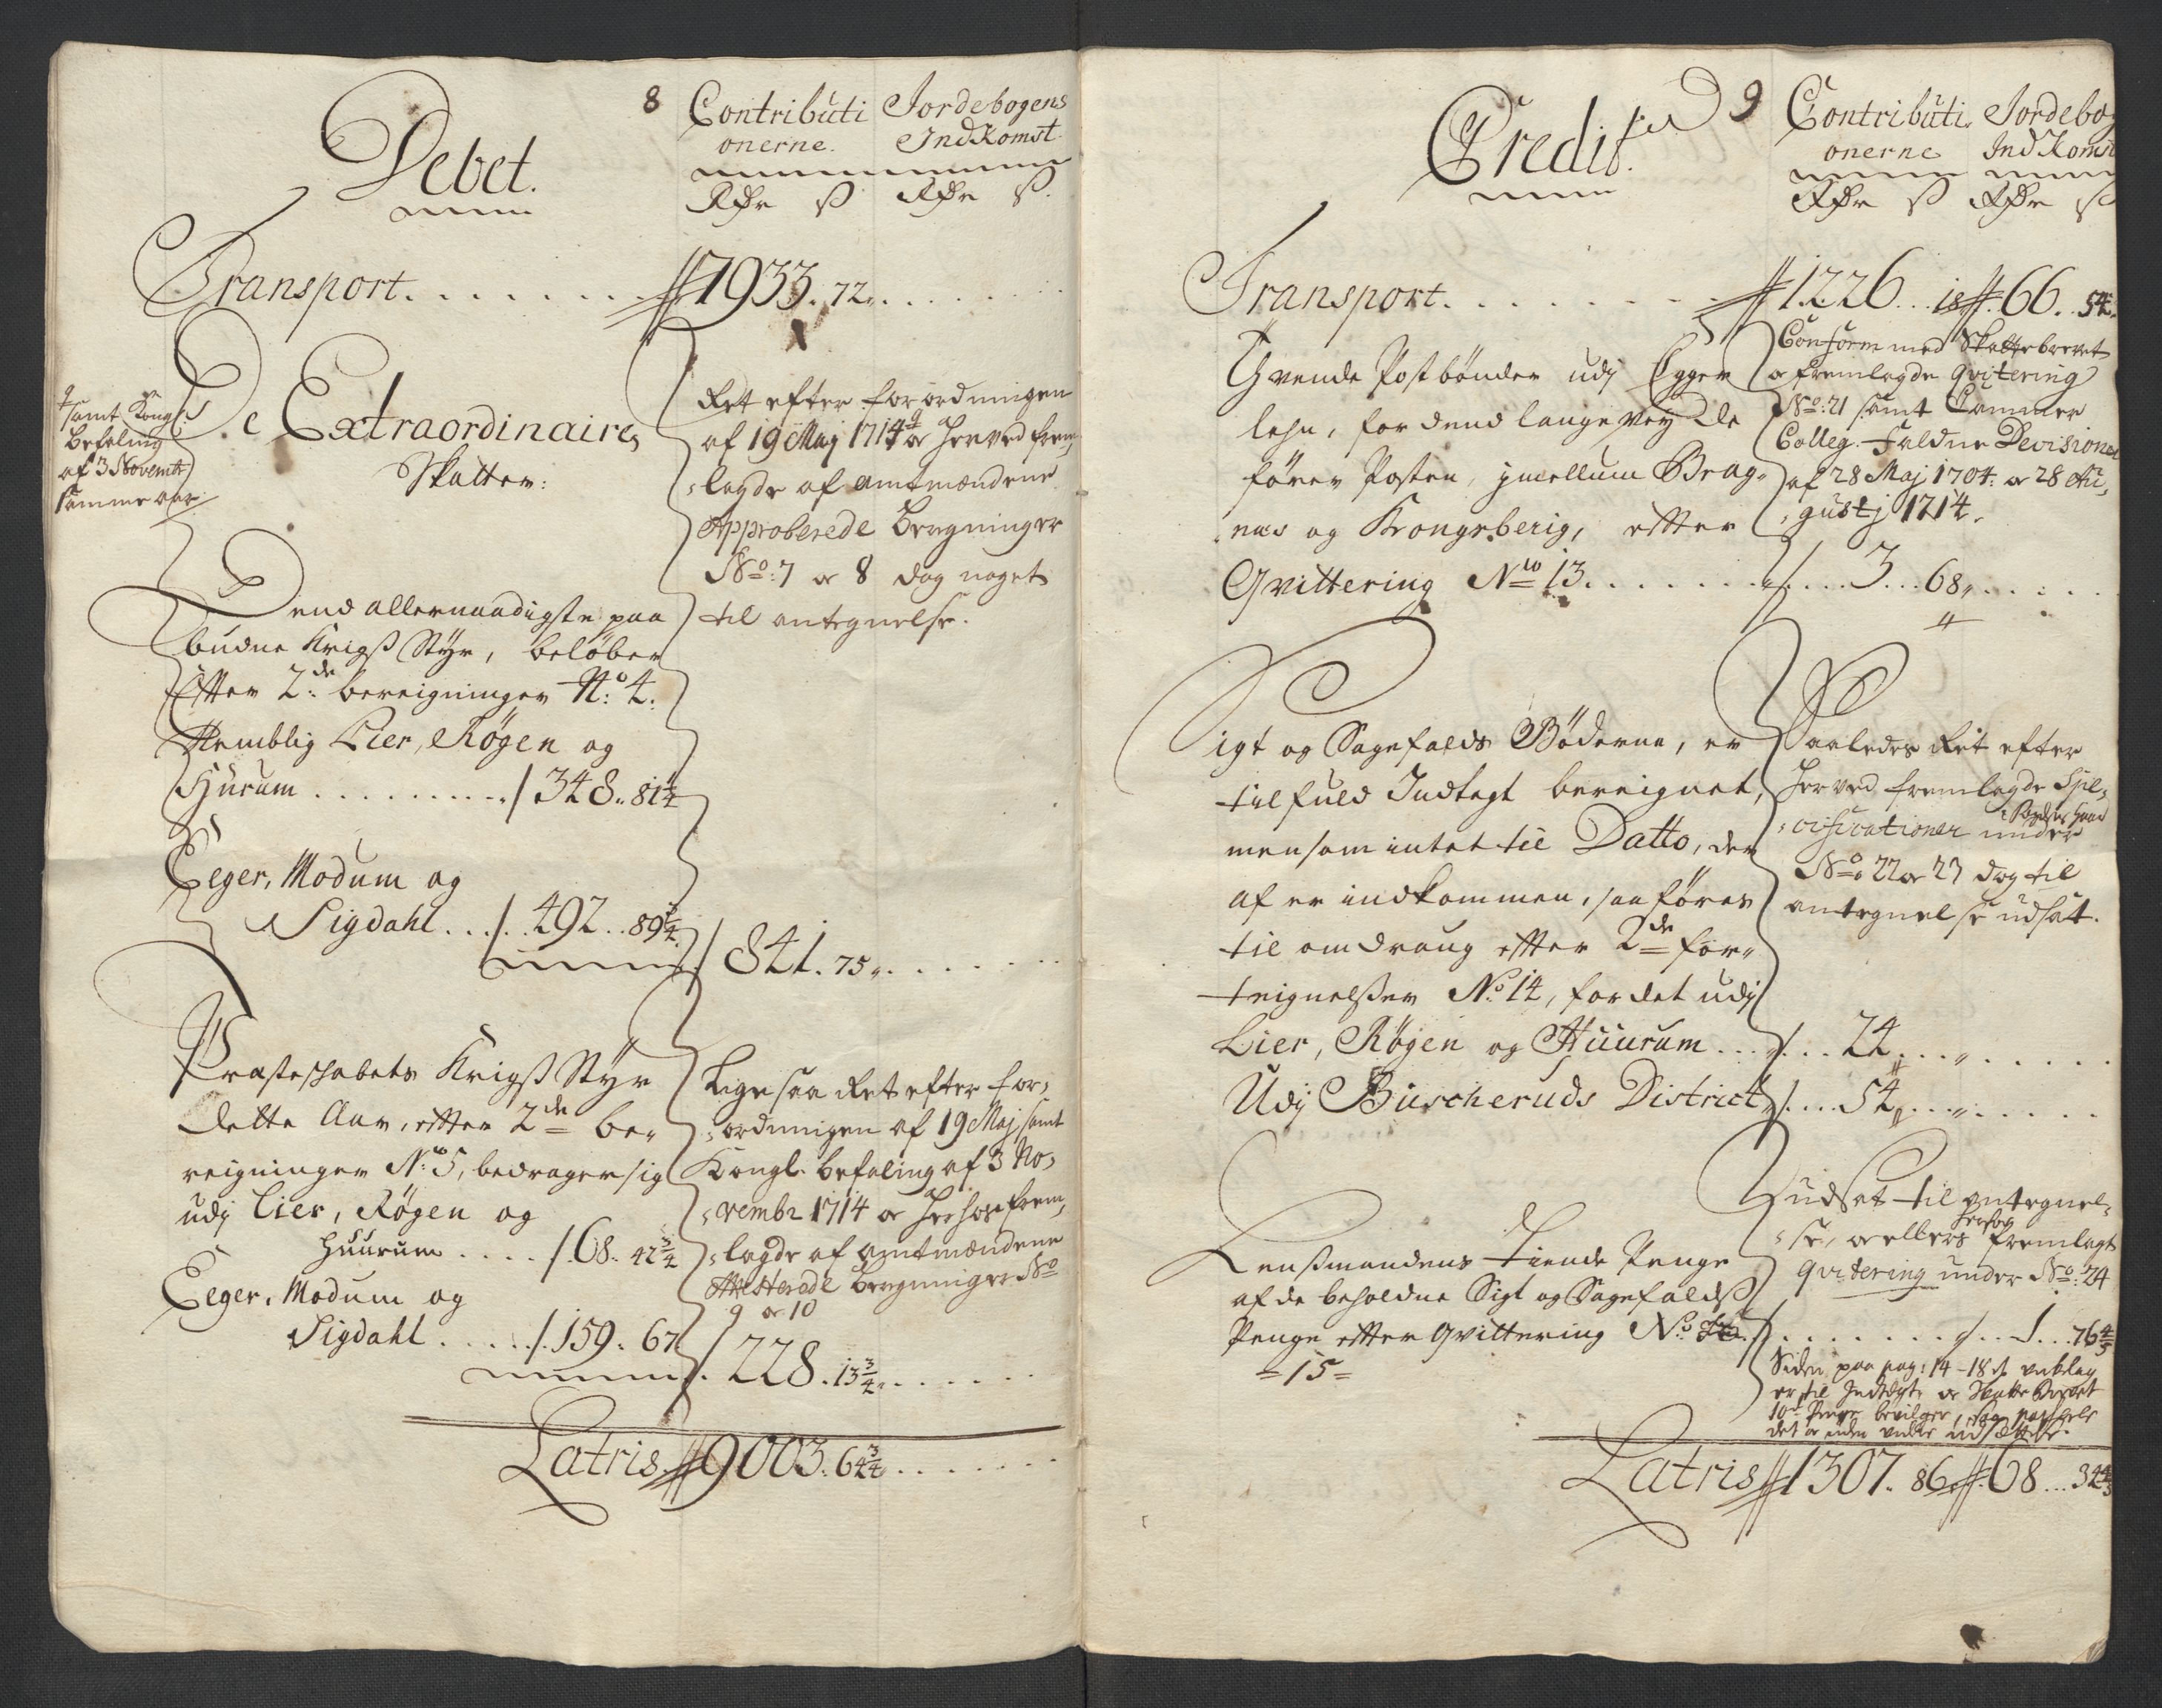 8
Debet.
Contributi
onerne.
Jordebogens
IndKomst
Rdr ß Rdr ß.
Transport. . . . . . . 7933. 72.
De Extraordinaire
Skatter:
samt Kongl:
Befaling
af 3 Novembr
samme aar
Ret efter forordningen
af 19 Maj 1714 og herved frem,
lagde af amtmændene
Approberede beregninger
No: 7 og 8 dog noget
til antegnelse.
Dend allernaadigste paa
budne Krigs Styr, beløber
Efter 2de bereigninger No: 4.
Nemblig Lier, Røgen og
Hurum . . . . . . . . . 348. 81 1/4
Eeger, Modum og
Sigdahl . . . 492. 89 3/4
841. 75.
Præsteskabets Krigs Styr
dette Aar, efter 2de be-
reigninger No: 5, bedrager sig
udj Lier, Røgen og
Huurum . . . . 68. 42 3/4
Eeger, Modum og
Sigdahl . . . . . 159. 67
228. 13 3/4
Lige saa Ret efter for,
ordningen af 19 Maj samt
Kongl. befaling af 3 No,
vembr 1714 og her hos frem,
lagde af amtmændene
Attesterede beregninger No
9 og 10
Latris 9003. 64 3/4
9
Credit.
Contributi
onerne
Jordebog
IndKomst
Rdr ß Rdr ß
Transport. . . . . . . . 1226. . 18 66. . 54.
Tvende Postbønder udj Egger
lehn, for dend lange vey de
fører Posten, imellum Brag-
nes og Kongsberig, efter
Qvittering No 13. . . . . . . . . . . 3 . . . 68.
Conform med Skattebrevet
og fremlagde qvitering
No: 21 samt Cammer
Colleg. faldne Decisioner
af 28 Maj 1704. og 28 Au,
gustj 1714.
Sigt og Sagefalds Bøderne, er
til fuld Indtegt bereignet,
men som intet til Datto, der
af er indkommen, saa føres
til omdraug efter 2de for-
teignelser No: 14, for det udj
Lier, Røgen og Huurum . . . . . . 24
Udj Buscheruds District . . . 54
Saaledes Ret efter
herved fremlagde Spe,
cificationer under
No 22 og 23 dog til
antegnelse udsat.
Lensmandens Tiende Penge
af de beholdne Sigt og Sagefalds
Penge efter Qvittering No:
=15=
. . . . . . 1 . . . 76 4/5
Udset til antegnel,
se, og ellers fremlagt
qvitering under No: 24
Siden paa pag: 14-18
er til Indtegt og Skatte Brevet
10de Penge bevilger,
det og uden
Latris 1307. 86 68 . . . 34 4/5